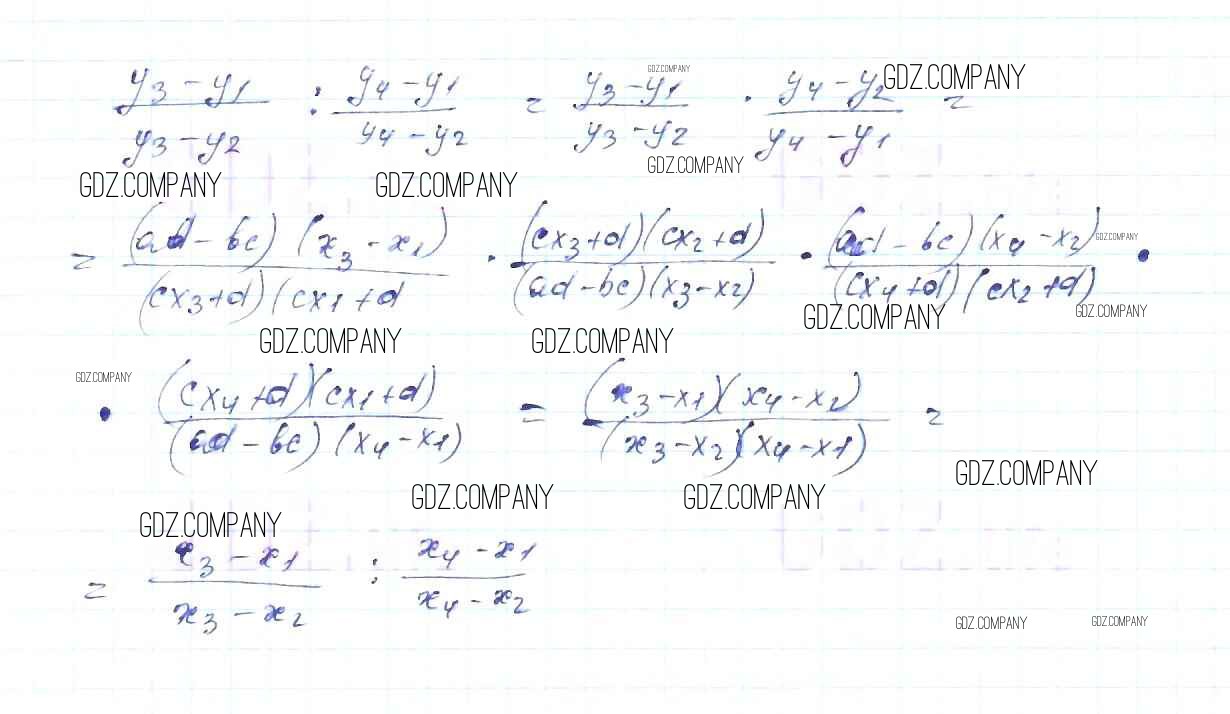 GDZ.COMPANY
(y3 − y1)/(y3 − y2) : (y4 − y1)/(y4 − y2) = (y3 − y1)/(y3 − y2) · (y4 − y2)/(y4 − y1) =
GDZ.COMPANY
GDZ.COMPANY
GDZ.COMPANY GDZ.COMPANY
= ((ad − bc)(x3 − x1))/((cx3 + d)(cx1 + d) · ((cx3 + d)(cx2 + d))/((ad − bc)(x3 − x2)) · ((ad − bc)(x4 − x2))/((cx4 + d)(cx2 + d)) ·
GDZ.COMPANY
GDZ.COMPANY GDZ.COMPANY
GDZ.COMPANY GDZ.COMPANY
GDZ.COMPANY
· ((cx4 + d)(cx1 + d))/((ad − bc)(x4 − x1)) = ((x3 − x1)(x4 − x2))/((x3 − x2)(x4 − x1)) =
GDZ.COMPANY
GDZ.COMPANY GDZ.COMPANY
GDZ.COMPANY
= (x3 − x1)/(x3 − x2) : (x4 − x1)/(x4 − x2)
GDZ.COMPANY GDZ.COMPANY